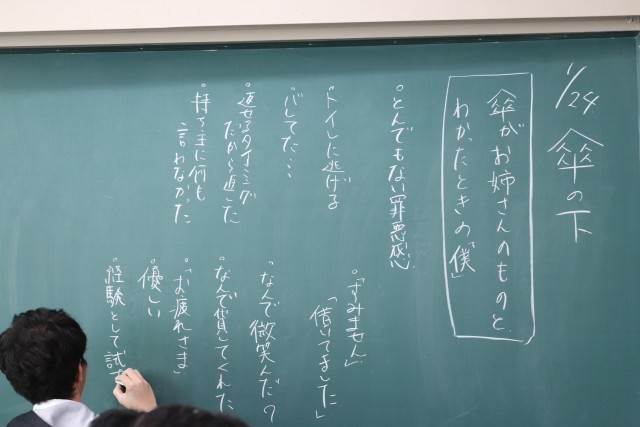 1/24 傘の下
傘がお姉さんのものと
わかったときの「僕」
・とんでもない罪悪感
・トイレに逃げる
・バレてた…
・返せるタイミング
だから返した
・持ち主に何も
言わなかった
・「すみません」
「借りてました」
・なんで微笑んだ?
・なんで貸してくれた
・「お疲れさま」
優しい
・経験として試